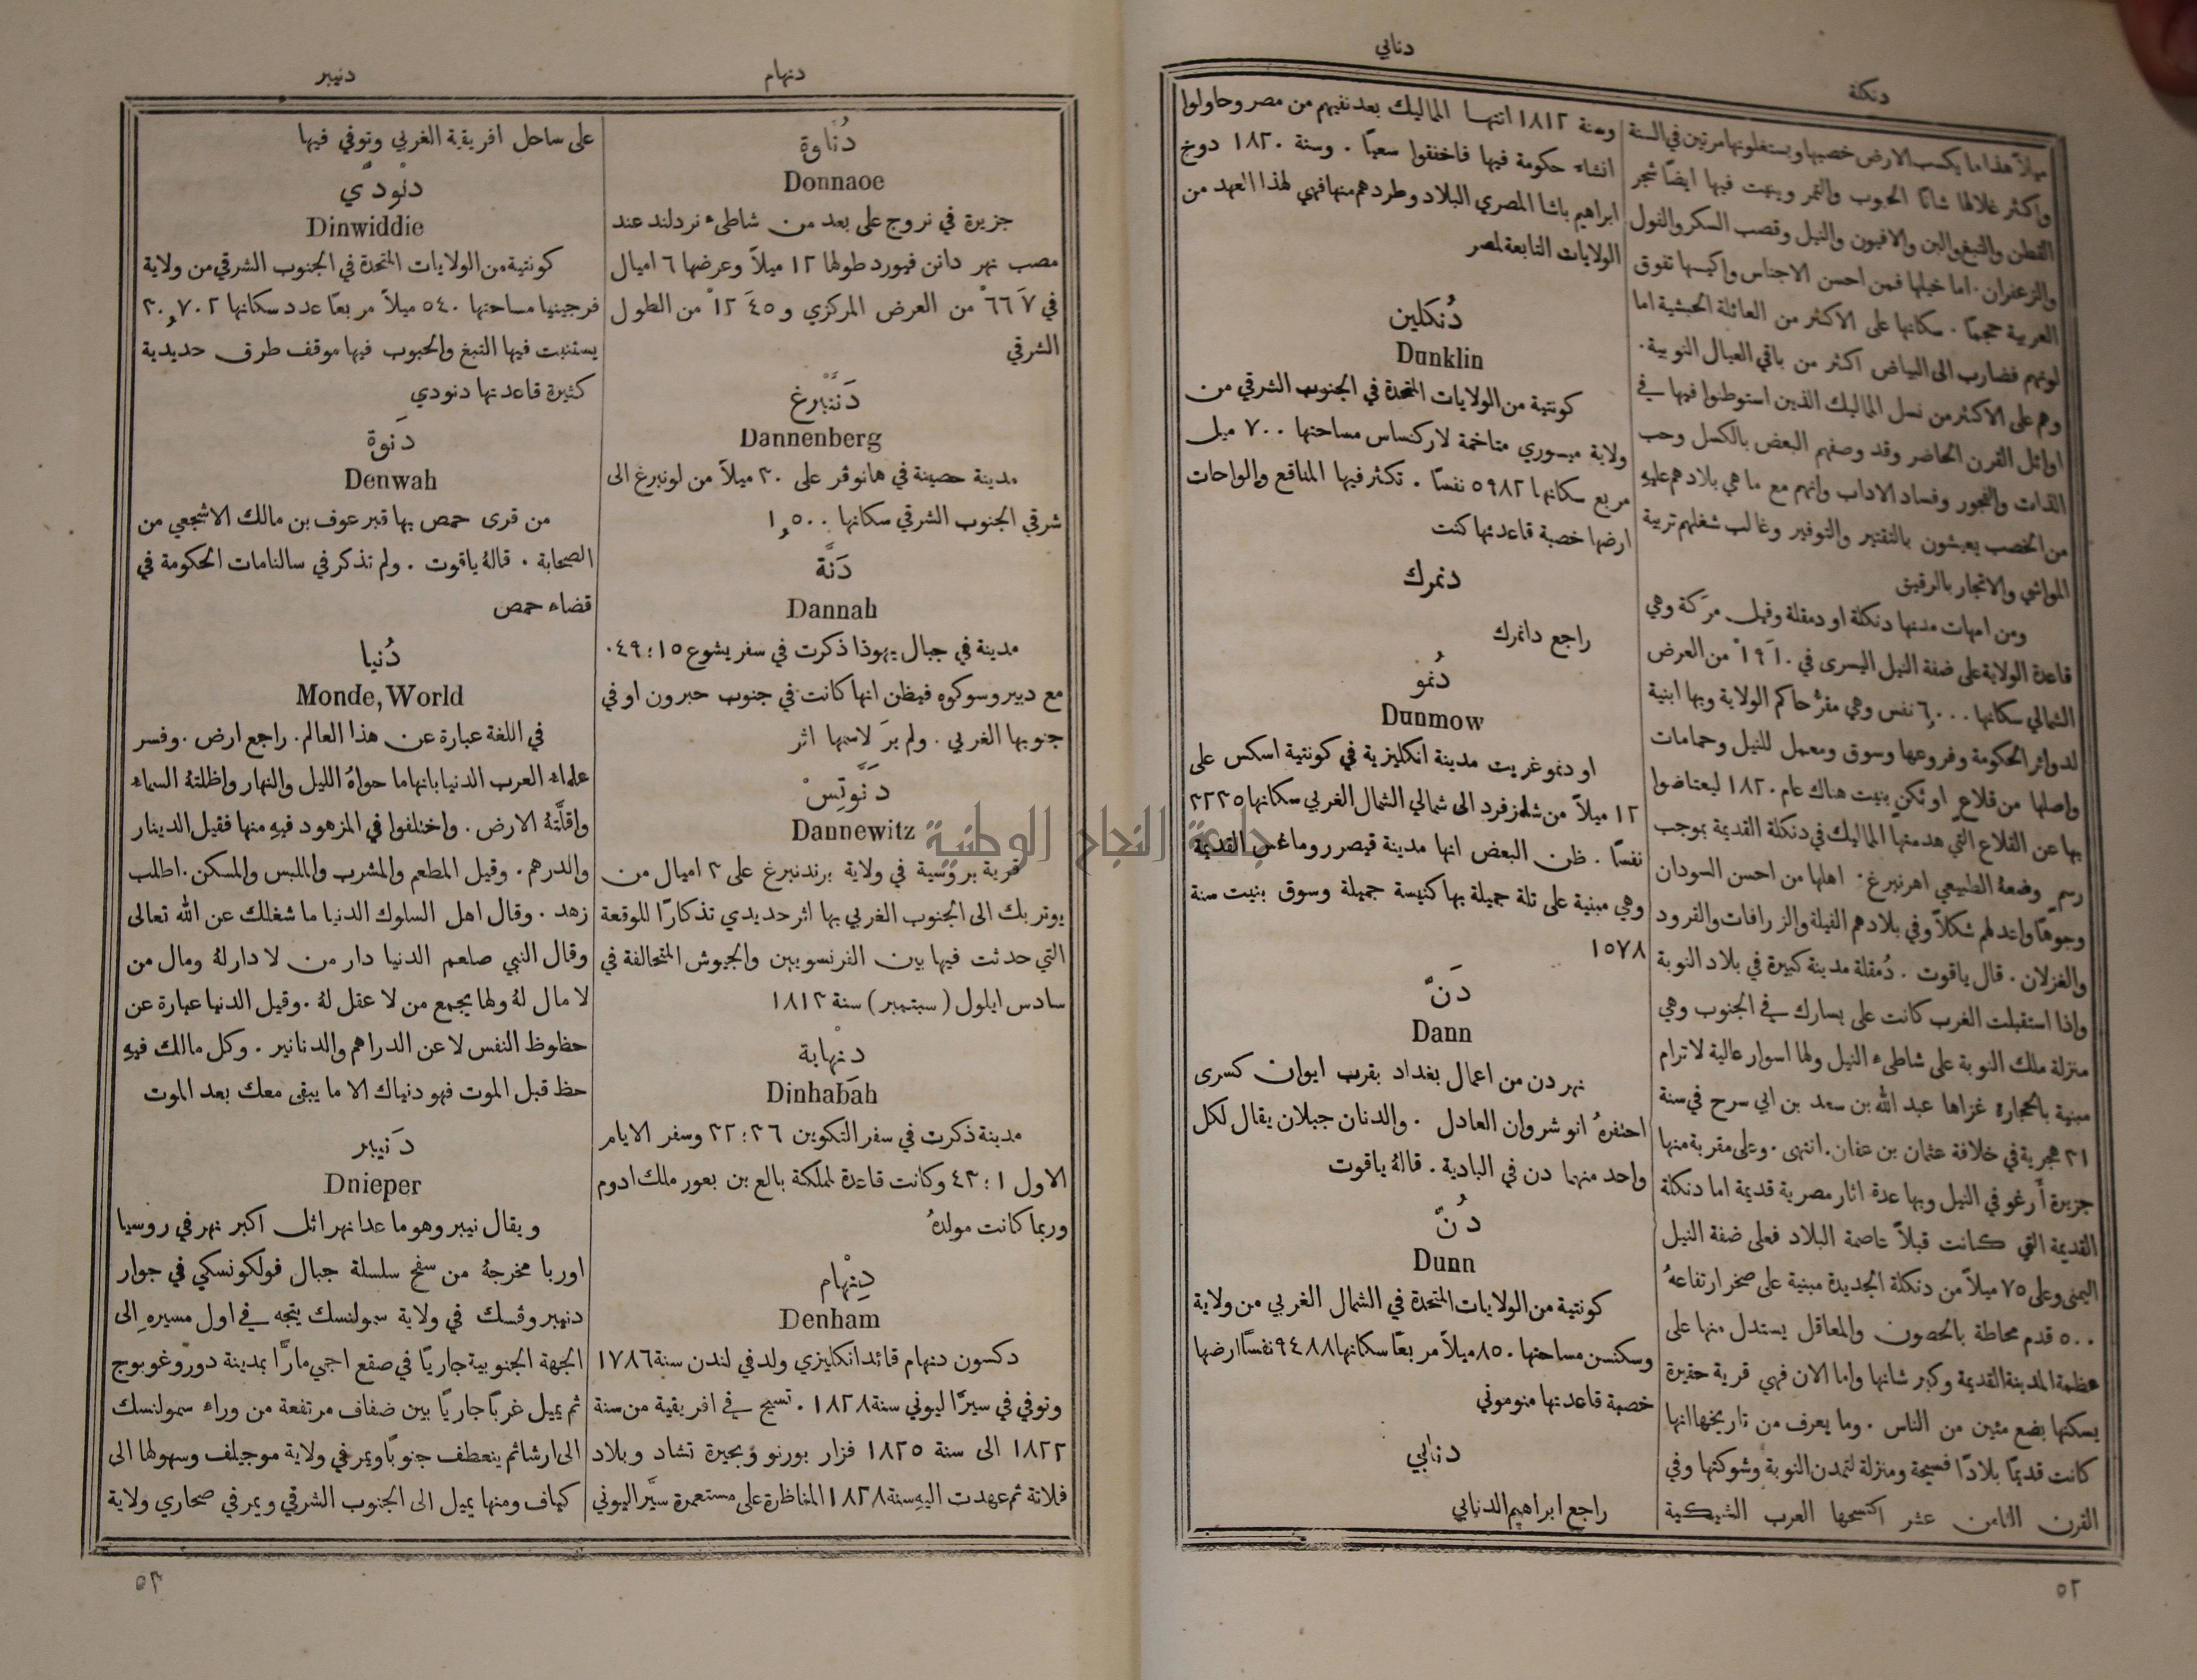 دنكلة
دنابي
ميلاً هذا ما يكسب الارض خصبها ويستغلونها مرتين في السنة
واكثر غلالها شانًا الحبوب والتمر وينبت فيها ايضًا شجر
القطن والتبغ والبن والافيون والنيل وقصب السكر والفول
والزعفران. اما خيلها فمن احسن الاجناس واكيسها تفوق
العربية حجمًا. سكانها على الاكثر من العائلة الحبشية اما
لونهم فضارب الى البياض اكثر من باقي العيال النوبية.
وهم على الاكثر من نسل المماليك الذين استوطنوا فيها في
اوائل القرن الحاضر وقد وصفهم البعض بالكسل وحب
اللذات والفجور وفساد الاداب وانهم مع ما هي بلادهم عليهِ
من الخصب يعيشون بالتقتير والتوفير وغالب شغلهم تربية
المواشي والاتجار بالرقيق
ومن امهات مدنها دنكلة او دمقلة وقيل مركة وهي
قاعدة الولاية على ضفة النيل اليسرى في ١٠َ ١٩ْ من العرض
الشمالي سكانها ٦٫٠٠٠ نفس وهي مقرُّ حاكم الولاية وبها ابنية
لدوائر الحكومة وفروعها وسوق ومعمل للنيل وحمامات
واصلها من قلاعٍ او ثكنٍ بنيت هناك عام ١٨٢٠ ليعتاضوا
بها عن القلاع التي هدمنها المماليك في دنكلة القديمة بموجب
رسمٍ وضعهُ الطبيعي اهرنبرغ. اهلها من احسن السودان
وجوهًا واعدلهم شكلاً وفي بلادهم الفيلة والزرافات والقرود
والغزلان. قال ياقوت. دُمقلة مدينة كبيرة في بلاد النوبة
واذا استقبلت الغرب كانت على يسارك في الجنوب وهي
منزلة ملك النوبة على شاطىء النيل ولها اسوار عالية لا ترام
مبنية بالحجارة غزاها عبد الله بن سعد بن ابي سرح في سنة
٣١ هجرية في خلافة عثمان بن عفان. انتهى. وعلى مقربة منها
جزيرة أَرغو في النيل وبها عدة اثار مصرية قديمة اما دنكلة
القديمة التي كانت قبلاً عاصمة البلاد فعلى ضفة النيل
اليمنى وعلى ٧٥ ميلاً من دنكلة الجديدة مبنية على صخر ارتفاعهُ
٥٠٠ قدم محاطة بالحصون والمعاقل يستدل منها على
عظمة المدينة القديمة وكبر شانها واما الان فهي قرية حقيرة
يسكنها بضع مئين من الناس. وما يعرف من تاريخها انها
كانت قديمًا بلادًا فسيحة ومنزلة لتمدن النوبة وشوكتها وفي
القرن الثامن عشر اكتسحها العرب الشيكية
وسنة ١٨١٢ انتهـا المماليك بعد نفيهم من مصر وحاولوا
انشاء حكومة فيها فاخفقوا سعيًا. وسنة ١٨٢٠ دوخ
ابراهيم باشا المصري البلاد وطردهم منها فهي لهذا العهد من
الولايات التابعة لمصر
دُنكلين
Dunklin
كونتية من الولايات المتحدة في الجنوب الشرقي من
ولاية ميسوري متاخمة لاركنساس مساحتها ٧٠٠ ميل
مربع سكانها ٥٩٨٢ نفسًا. تكثر فيها المناقع والواحات
ارضها خصبة قاعدتها كنت
دنمرك
راجع دانمرك
دُنمو
Dunmow
او دنمو غريت مدينة انكليزية في كونتية اسكس على
١٢ ميلاً من شلمزفرد الى شمالي الشمال الغربي سكانها ٢٢٣٥
نفسًا. ظن البعض انها مدينة قيصر روماغس القديمة
وهي مبنية على تلة جميلة بها كنيسة جميلة وسوق بنيت سنة
١٥٧٨
دَنّ
Dann
نهر دن من اعمال بغداد بقرب ايوان كسرى
احتفرهُ انوشروان العادل. والدنان جبلان يقال لكل
واحد منهما دن في البادية. قالهُ ياقوت
دُنّ
Dunn
كونتية من الولايات المتحدة في الشمال الغربي من ولاية
وسكنسن مساحتها ٨٥٠ ميلاً مربعًا سكانها ٩٤٨٨ نفسًا ارضها
خصبة قاعدتها منوموني
دنابي
راجع ابراهيم الدنابي
٥٢
دنهام
دنيبر
دُنَّاوة
Donnaoe
جزيرة في نروج على بعد من شاطىء نردلند عند
مصب نهر دانن فيورد طولها ١٢ ميلاً وعرضها ٦ اميال
في ٧َ ٦٦ْ من العرض المركزي و ٤٥َ ١٢ْ من الطول
الشرقي
دَنَّنْبَرغ
Dannenberg
مدينة حصينة في هانوڤر على ٣٠ ميلاً من لونبرغ الى
شرقي الجنوب الشرقي سكانها ١٫٥٠٠
دَنَّة
Dannah
مدينة في جبال يهوذا ذكرت في سفر يشوع ١٥: ٤٩.
مع دبير وسوكوه فيظن انها كانت في جنوب حبرون او في
جنوبها الغربي. ولم يرَ لاسمها اثر
دَنَّوِتِسْ
Dannewitz
قرية بروسية في ولاية برندنبرغ على ٣ اميال من
يوتربك الى الجنوب الغربي بها اثر حديدي تذكارًا للوقعة
التي حدثت فيها بين الفرنسويين والجيوش المتحالفة في
سادس ايلول (سبتمبر) سنة ١٨١٣
دنْهابة
Dinhabah
مدينة ذكرت في سفر التكوين ٣٦: ٣٢ وسفر الايام
الاول ١: ٤٣ وكانت قاعدة لملكة بالع بن بعور ملك ادوم
وربما كانت مولدهُ
دِنْهام
Denham
دكسون دنهام قائد انكليزي ولد في لندن سنة ١٧٨٦
وتوفي في سيرَّا ليوني سنة ١٨٢٨. تسيح في افريقية من سنة
١٨٢٢ الى سنة ١٨٢٥ فزار بورنو وبحيرة تشاد وبلاد
فلاتة ثم عهدت اليهِ سنة ١٨٢٨ المناظرة على مستعمرة سيَّر اليوني
على ساحل افريقية الغربي وتوفي فيها
دنْودّي
Dinwiddie
كونتية من الولايات المتحدة في الجنوب الشرقي من ولاية
فرجينيا مساحتها ٥٤٠ ميلاً مربعًا عدد سكانها ٣٠٫٧٠٢
يستنبت فيها التبغ والحبوب فيها موقف طرق حديدية
كثيرة قاعدتها دنودي
دَنوة
Denwah
من قرى حمص بها قبر عوف بن مالك الاشجعي من
الصحابة. قالهُ ياقوت. ولم تذكر في سالنامات الحكومة في
قضاء حمص
دُنيا
Monde, World
في اللغة عبارة عن هذا العالم. راجع ارض. وفسر
علماء العرب الدنيا بانها ما حواهُ الليل والنهار واظلتهُ السماء
واقلَّتهُ الارض. واختلفوا في المزهود فيهِ منها فقيل الدينار
والدرهم. وقيل المطعم والمشرب والملبس والمسكن. اطلب
زهد. وقال اهل السلوك الدنيا ما شغلك عن الله تعالى
وقال النبي صلعم الدنيا دار من لا دار لهُ ومال من
لا مال لهُ ولها يجمع من لا عقل لهُ. وقيل الدنيا عبارة عن
حظوظ النفس لا عن الدراهم والدنانير. وكل مالك فيهِ
حظ قبل الموت فهو دنياك الا ما يبقى معك بعد الموت
دَنيبر
Dnieper
ويقال نيبر وهو ما عدا نهر اتل اكبر نهر في روسيا
اوربا مخرجهُ من سفح سلسلة جبال ڤولكونسكي في جوار
دنيبروڤسك في ولاية سمولنسك يتجه في اول مسيرهِ الى
الجهة الجنوبية جاريًا في صقع اجمي مارًّا بمدينة دوروغوبوج
ثم يميل غربًا جاريًا بين ضفاف مرتفعة من وراء سمولنسك
الى ارشا ثم ينعطف جنوبًا ويمر في ولاية موجيلف وسهولها الى
كياف ومنها يميل الى الجنوب الشرقي ويمر في صحاري ولاية
٥٣
جامعة النجاح الوطنية